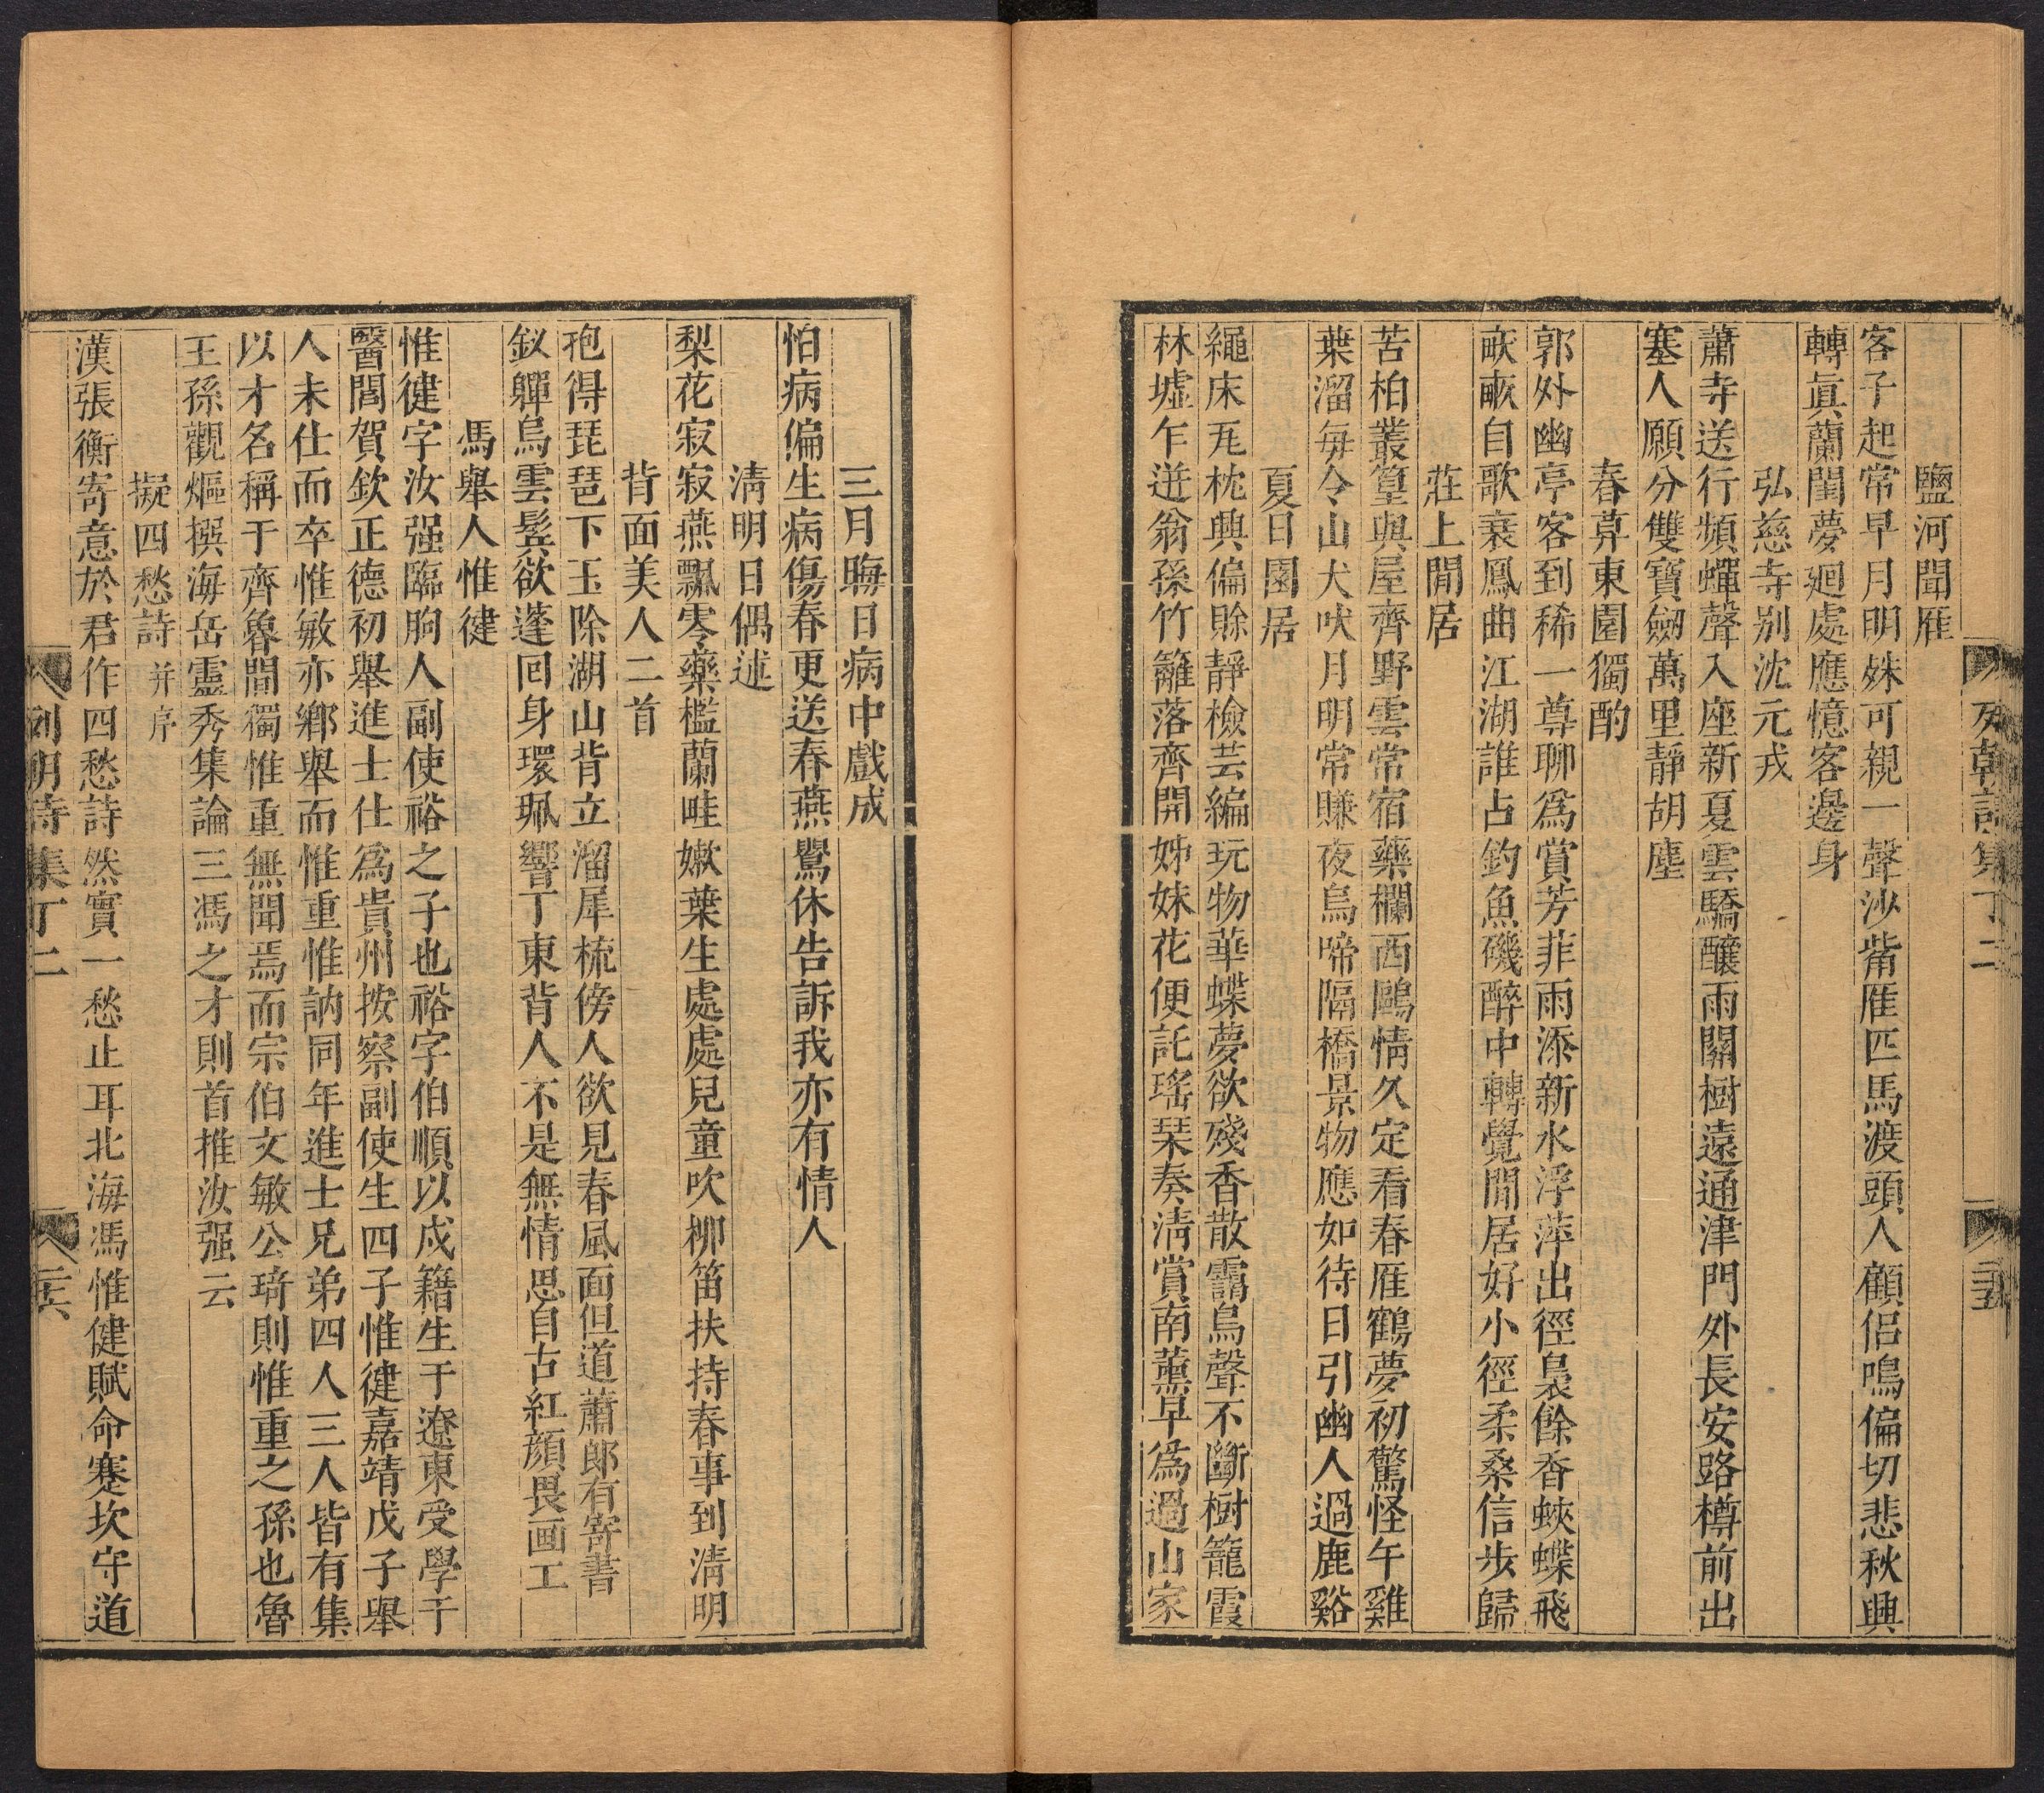 列朝詩集丁二
鹽河聞雁
客子起常早月明姝可親一聲沙觜雁匹馬渡頭人顧侶鳴偏切悲秋興
轉真蘭閨夢廻處應憶客邊身
弘慈寺别沈元戎
蕭寺送行頻蟬聲入座新夏雲驕釀雨關樹遠通津門外長安路樽前出
塞人願分雙寶劒萬里靜胡塵
春暮東園獨酌
郭外幽亭客到稀一尊聊爲賞芳菲雨添新水浮萍出徑裊餘香蛺蝶飛
畝畝自歌衰鳳曲江湖誰占釣魚磯醉中轉覺閒居好小徑柔桑信步歸
莊上閒居
苦柏叢篁與屋齊野雲常宿藥欄西鷗情久定看春雁鶴夢初驚怪午雞
葉溜每令山犬吠月明常賺夜烏啼隔橋景物應如待日引幽人過鹿谿
夏日園居
繩床瓦枕興偏賖靜檢芸編玩物華蝶夢欲殘香散靄鳥聲不斷樹籠霞
林墟乍迸翁孫竹籬落齊開姊妹花便託瑤琴奏清賞南薰早爲過山家
三月晦日病中戲成
怕病偏生病傷春更送春燕鸎休告訴我亦有情人
淸明日偶述
梨花寂寂燕飄零藥檻蘭畦嫩葉生處處兒童吹柳笛扶持春事到淸明
背面美人二首
抱得琵琶下玉除湖山背立溜犀梳傍人欲見春風面但道蕭郞有寄書
釵軃烏雲鬂欲蓬回身環珮響丁東背人不是無情思自古紅顔畏画工
馮舉人惟健
惟健字汝强臨朐人副使裕之子也裕字伯順以戍籍生于遼東受學于
醫閭賀欽正德初舉進士仕爲貴州按察副使生四子惟健嘉靖戊子舉
人未仕而卒惟敏亦鄉舉而惟重惟訥同年進士兄弟四人三人皆有集
以才名稱于齊魯間獨惟重無聞焉而宗伯文敏公琦則惟重之孫也魯
王孫觀熰撰海岳靈秀集論三馮之才則首推汝强云
擬四愁詩并序
漢張衡寄意於君作四愁詩然實一愁止耳北海馮惟健賦命蹇坎守道
列朝詩集丁二